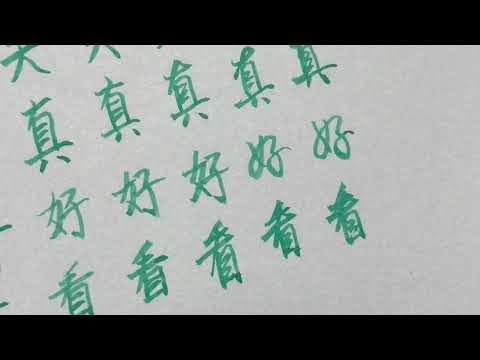 天
真真真真真
好好好好好
看看看看看